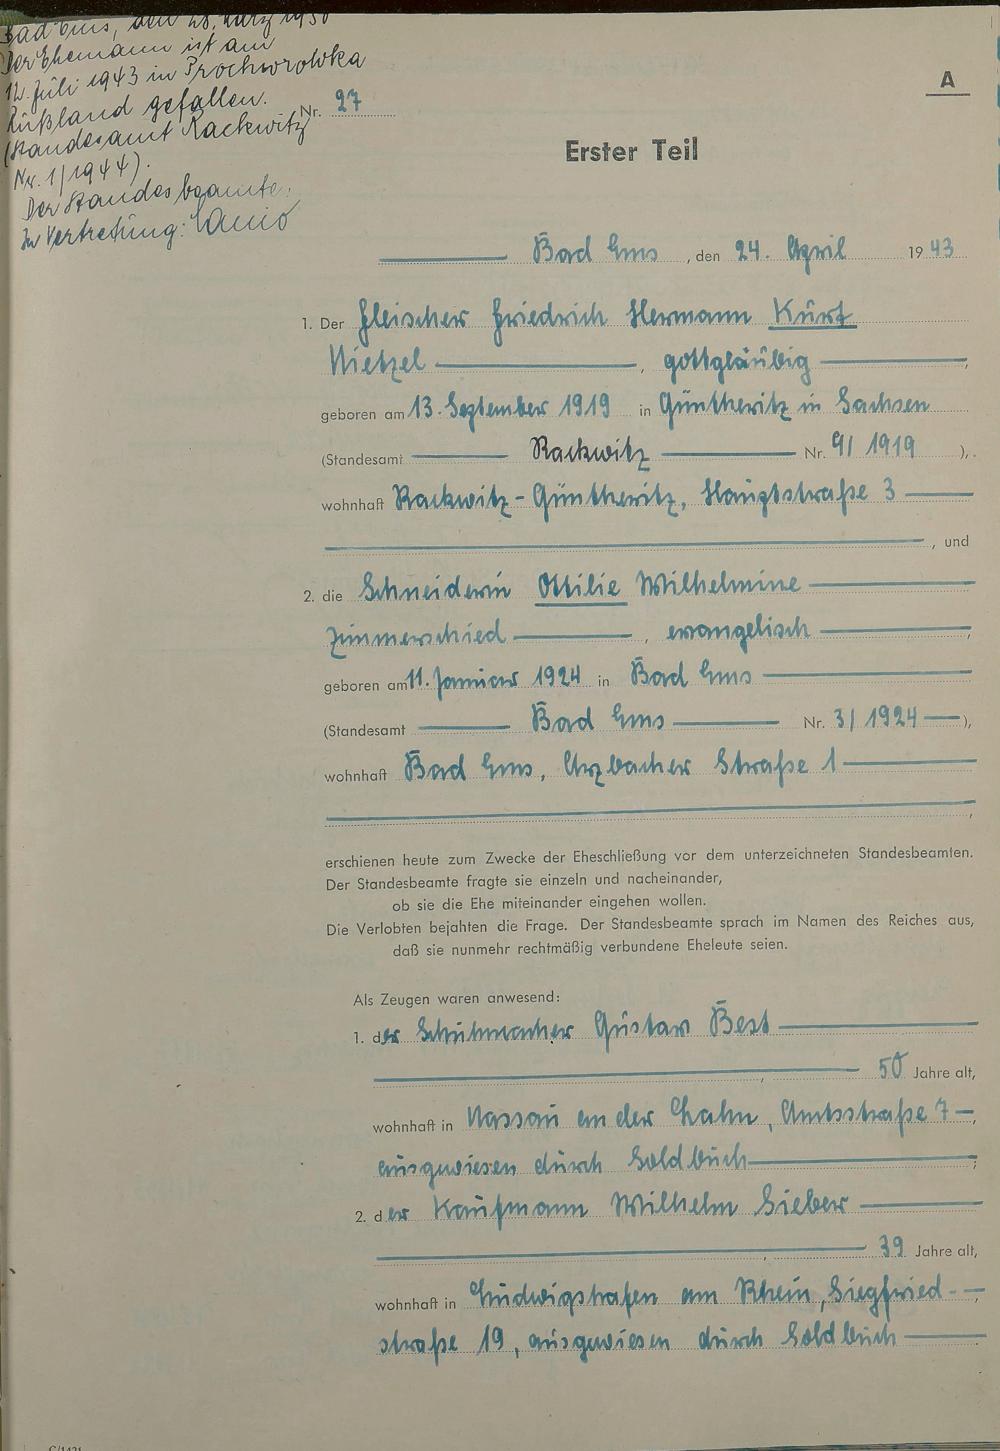 Bad Ems, den 28. März 1950
Der Ehemann ist am
12. Juli 1943 in Prochorowka
Rußland gefallen.
(Standesamt Rackwitz
Nr. 1/1944).
Der Standesbeamte.
In Vertretung:
Nr. 27
A
Erster Teil
Bad Ems, den 24. April 1943
1. Der Fleischer Friedrich Hermann Kurt
Nietzel, gottgläubig,
geboren am 13. September 1919 in Güntheritz in Sachsen
(Standesamt Rackwitz Nr. 9/1919),
wohnhaft Rackwitz-Güntheritz, Hauptstraße 3
, und
2. die Schneiderin Ottilie Wilhelmine
Zimmerschied, evangelisch,
geboren am 11. Januar 1924 in Bad Ems
(Standesamt Bad Ems Nr. 3/1924),
wohnhaft Bad Ems, Arzbacher Straße 1
,
erschienen heute zum Zwecke der Eheschließung vor dem unterzeichneten Standesbeamten.
Der Standesbeamte fragte sie einzeln und nacheinander,
ob sie die Ehe miteinander eingehen wollen.
Die Verlobten bejahten die Frage. Der Standesbeamte sprach im Namen des Reiches aus,
daß sie nunmehr rechtmäßig verbundene Eheleute seien.
Als Zeugen waren anwesend:
1. der Schuhmacher Gustav Best
, 50 Jahre alt,
wohnhaft in Nassau an der Lahn, Amtsstraße 7,
ausgewiesen durch Soldbuch;
2. der Kaufmann Wilhelm Sieber
, 39 Jahre alt,
wohnhaft in Ludwigshafen am Rhein, Siegfried-,
straße 19, ausgewiesen durch Soldbuch